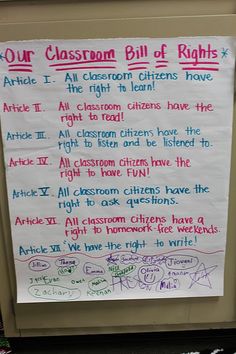 *Our Classroom Bill of Rights*
Article I. All classroom citizens have
the right to learn!
Article II. All classroom citizens have the
right to read!
Article III. All classroom citizens have the
right to listen and be listened to.
Article IV. All classroom citizens have the
right to have FUN!
Article V. All classroom citizens have the
right to ask questions.
Article VI. All classroom citizens have a
right to homework-free weekends.
Article VII. We have the right to write!
Jillian
Emma
Olivia
Giovani
Malia
Zachary
Keenan